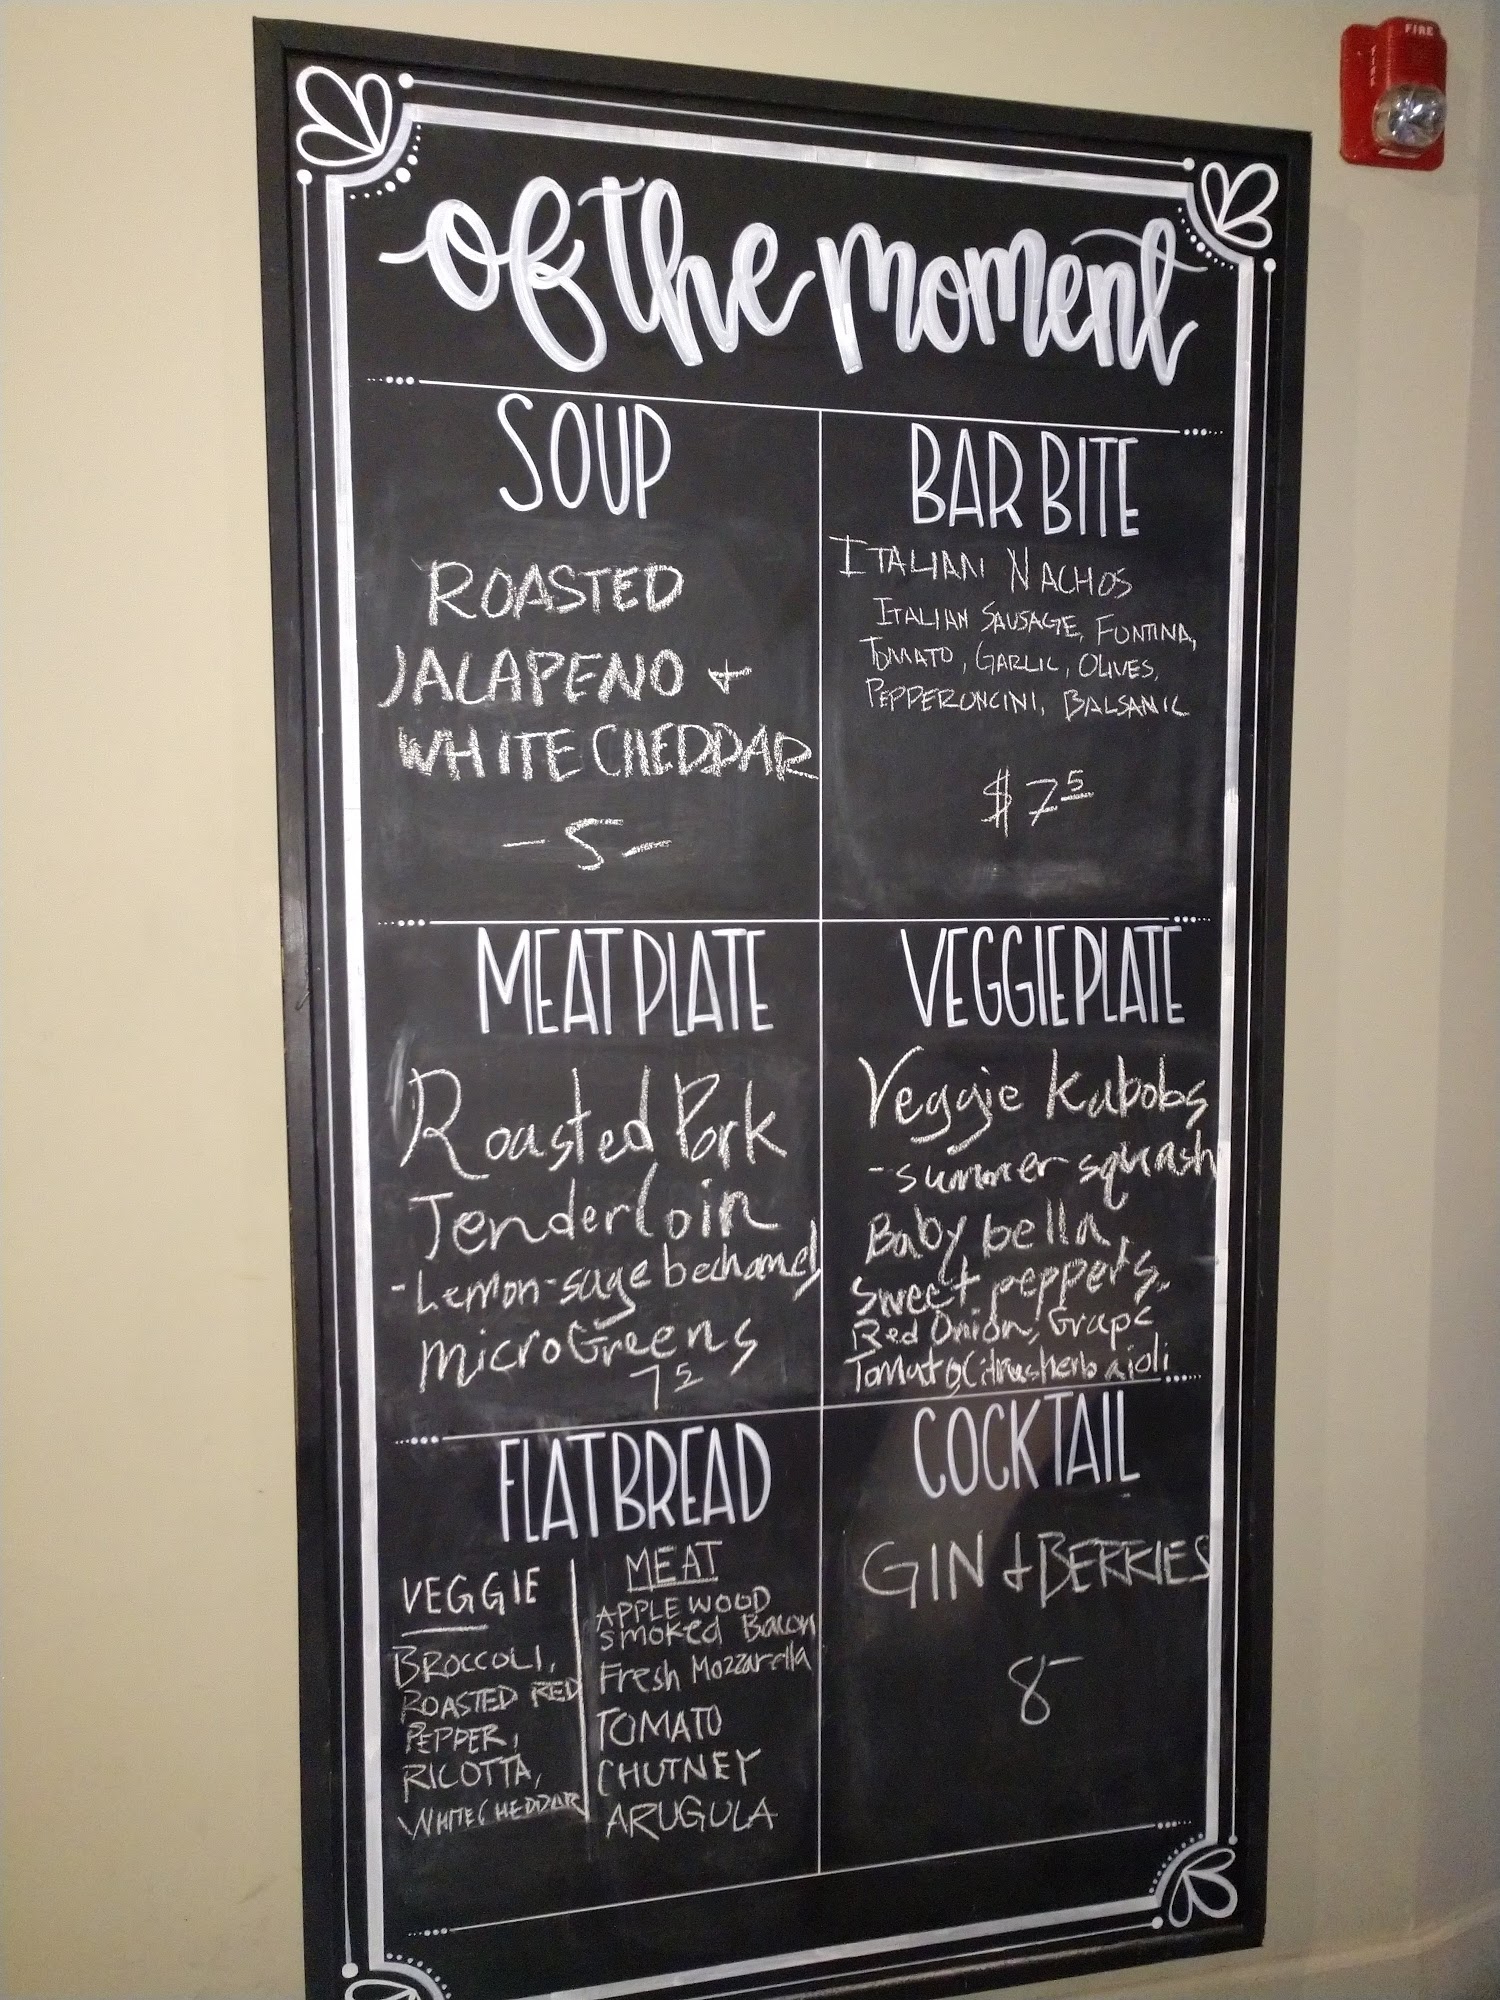 of the moment
SOUP
ROASTED
JALAPENO +
WHITE CHEDDAR
-5-
BAR BITE
ITALIAN NACHOS
ITALIAN SAUSAGE, FONTINA,
TOMATO, GARLIC, OLIVES,
PEPPERONCINI, BALSAMIC
$7 5
MEAT PLATE
Roasted Pork
Tenderloin
-Lemon-sage bechamel
microGreens
7 5
VEGGIE PLATE
Veggie Kabobs
-summer squash
Baby bella,
Sweet peppers,
Red Onion, Grape
Tomato, Citrus herb aioli
FLATBREAD
VEGGIE
BROCCOLI,
ROASTED RED
PEPPER,
RICOTTA,
WHITE CHEDDAR
MEAT
APPLE WOOD
smoked Bacon
Fresh Mozzarella
TOMATO
CHUTNEY
ARUGULA
COCKTAIL
GIN + BERRIES
8-
FIRE
FIRE